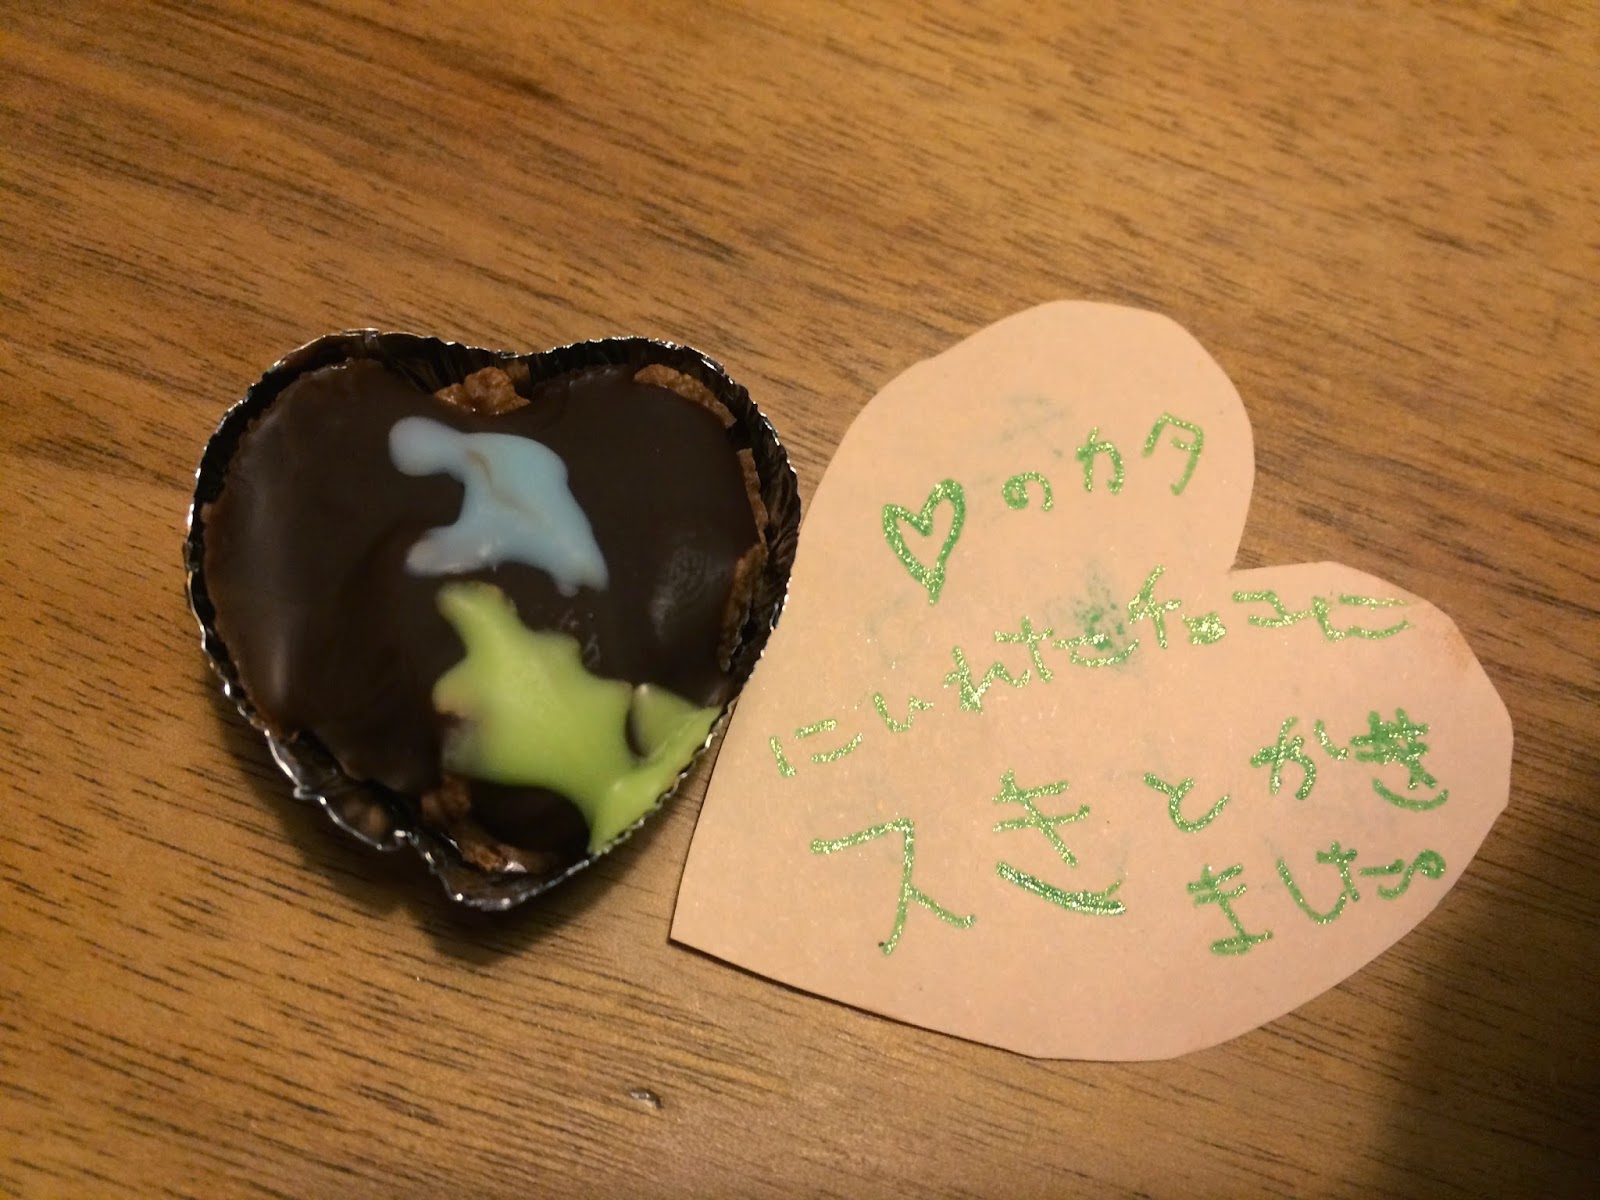 ♡のカタ
にいれたチョコに
スきとかき
ました。